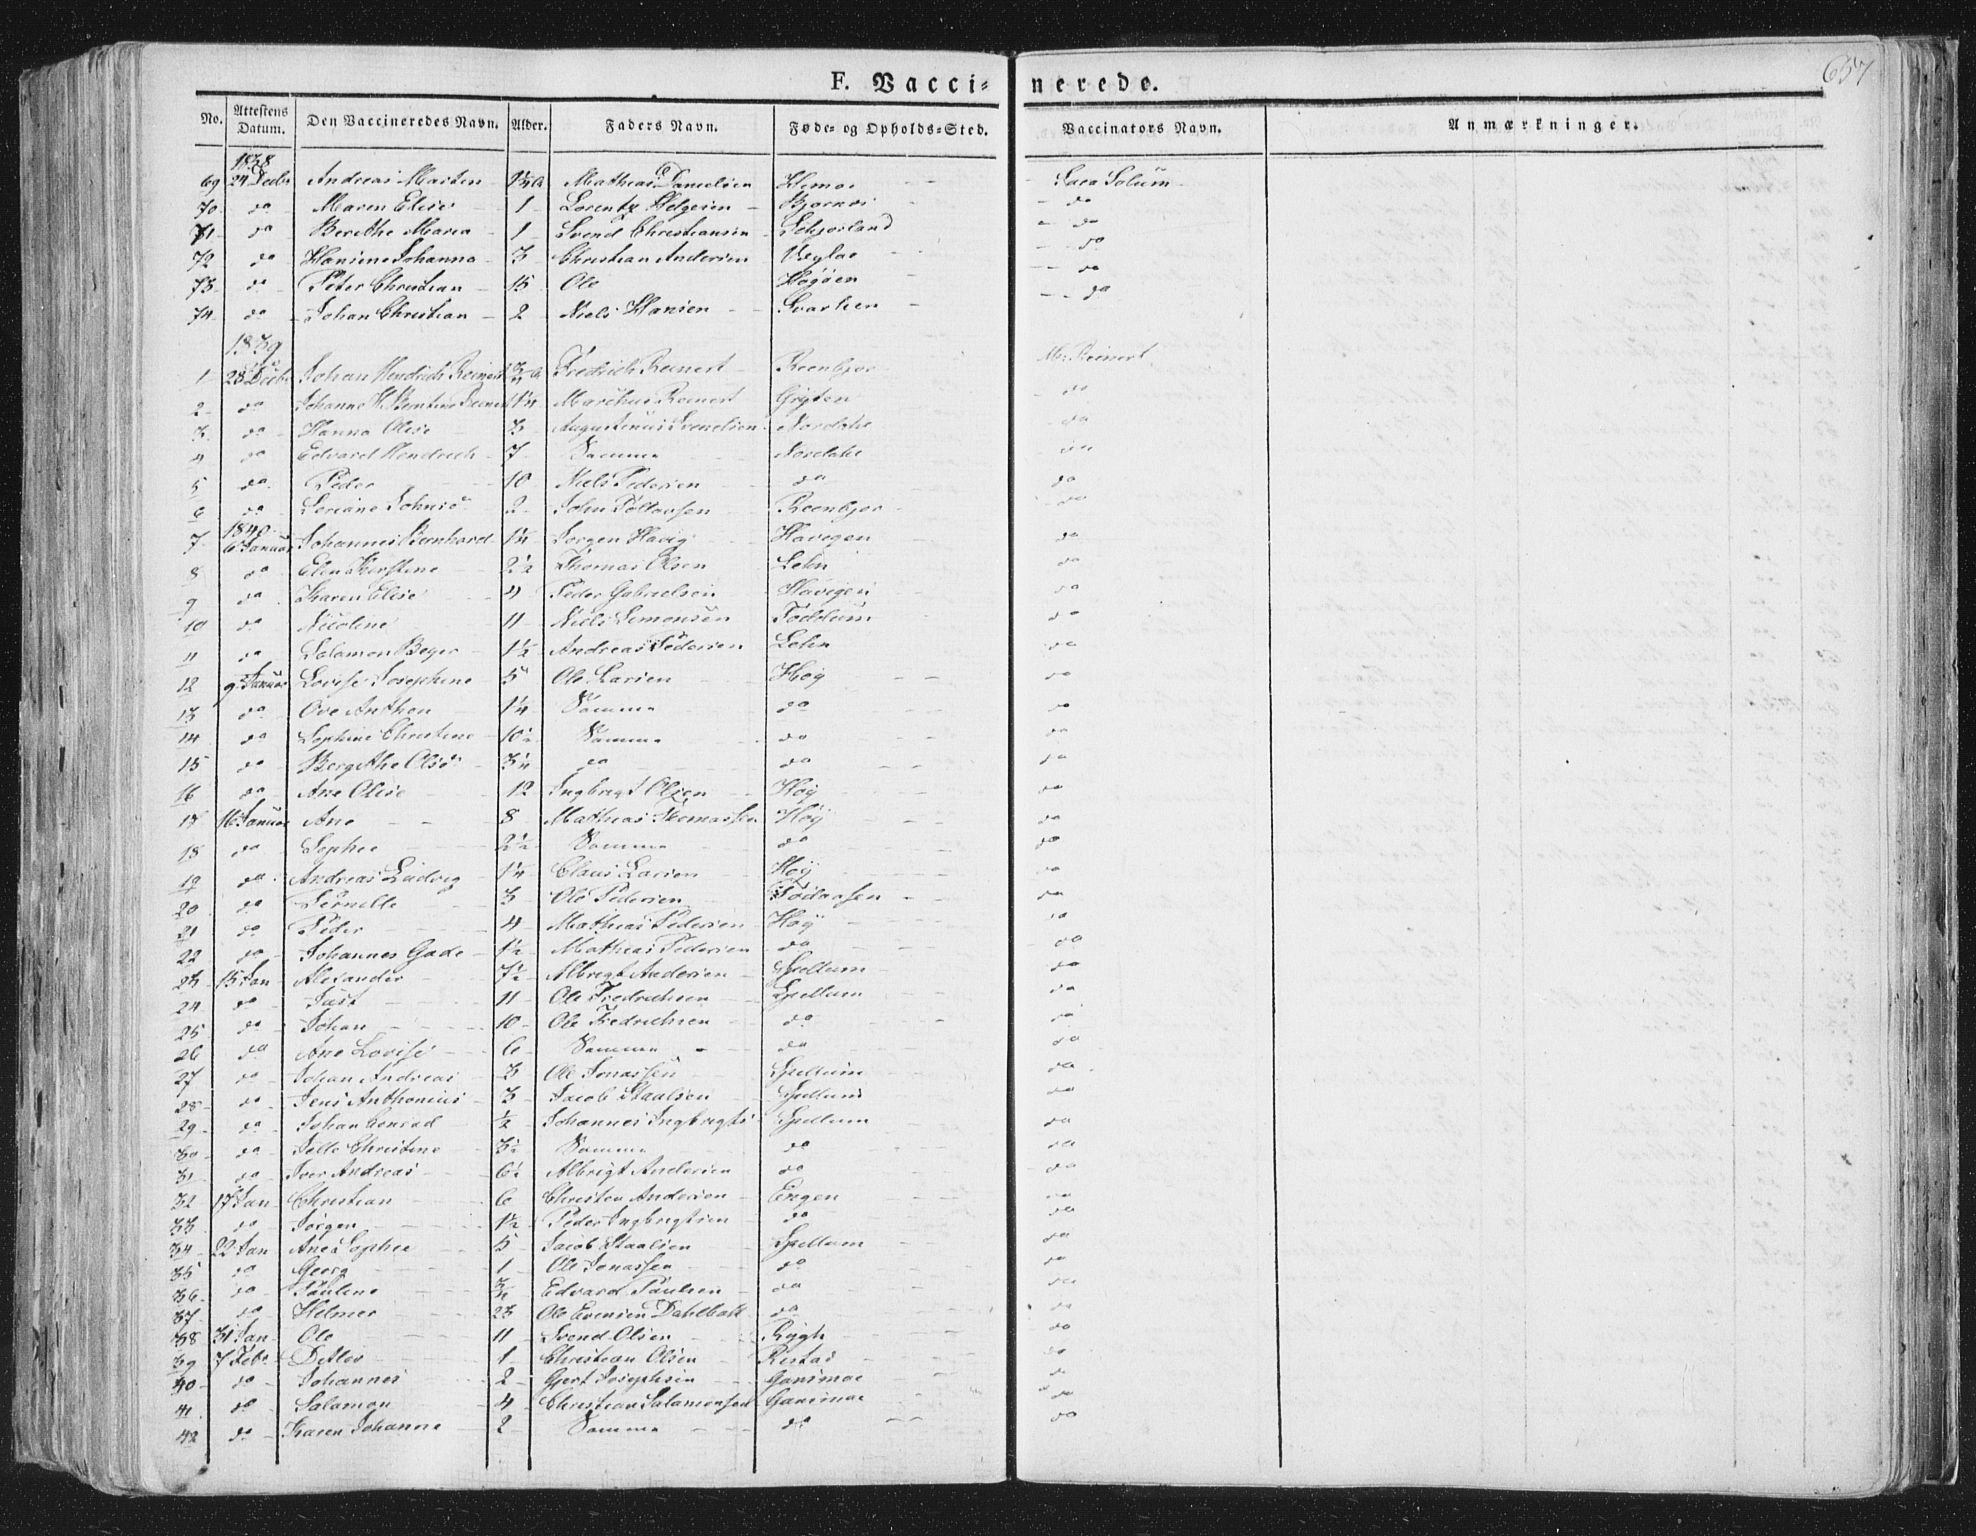 657
F. Vaccinerede.
No. Attestens Datum. Den Vaccineredes Navn. Alder. Faders Navn. Føde- og Opholds-Sted. Vaccinators Navn. Anmærkninger.
1838
69 24 Decbr Andreas Marten Mathias Danielsen Sara Solum
70 do Maren Elise 1 Lorentz Helgesen do
71 do Berithe Maria 1 Svend Christiansen do
72 do Hansine Johanna 3 Christian Andersen do
73 do Peter Christian 15 Ole Høgøen do
74 do Johan Christian 2 Niels Hansen do
1839
1 28 Decbr Johan Hendrich Reinert 3/4 Fredrich Reinert Reenbjor M: Reinert
2 do Johanne Reinert Gryten do
3 do Hanna Olise 3 Augustinus Svendsen do
4 do Edvard Hendrich 7 Samme do
5 do Peder 10 Niels Pedersen do do
6 do 2 John Reenbjor do
1840
7 6 Januar Johannes Bernhard 1 1/4 Jørgen Havig Havigen do
8 do Elen Kirstine 2 1/2 Thomas Olsen Lein do
9 do Karen Elise 4 Peder Gabrielsen Havigen do
10 do Nicoline 11 Niels Simonsen do
11 do Salamon Beyer 1 1/2 Andreas Pedersen Lein do
12 9 Januar Lovise Josephine 5 Ole Larsen Høy do
13 do Ove Anthon 1 1/4 Samme do do
14 do Sophie Christine 10 1/2 Samme do do
15 do Bergithe Olise 3 1/4 do do do
16 do Ane Olise 12 Ingbrigt Olsen Høy do
17 16 Januar Ane 8 Mathias Thomassen Høy do
18 do Sophie 2 1/2 Samme do do
19 do Andreas Ludvig 1 1/4 Claus Larsen Høy do
20 do Pernelle 3 Ole Pedersen do
21 do Peder 4 Mathias Pedersen Høy do
22 do Johannes Gade 1 1/2 Mathias Pedersen do do
23 15 Jan Alexander 7 1/2 Albrigt Andersen Spillum do
24 do 11 Ole Fredrichsen Spillum do
25 do Johan 10 Ole Fredrichsen do do
26 do Ane Lovise 6 Samme do do
27 do Johan Andreas 3 Ole Jonassen Spillum do
28 do Jens Anthonius 3 Jacob Staalsen Spillum do
29 do Johan Conrad 1/2 Johannes Ingbrigts Spillum do
30 do Christine 3 1/2 Samme do do
31 do Iver Andreas 6 1/2 Albrigt Andersen do do
32 17 Jan Christian 6 Christen Andersen Engen do
33 do Jørgen 1 1/2 Peder Ingbrigtsen do do
34 22 Jan Ane Sophie 5 Jacob Staalsen Spillum do
35 do Georg 1 Ole Jonassen do do
36 do Pauline 3/4 Edvard Paulsen do do
37 do Helmer 23 Ole Evensen Dahlbak do do
38 31 Jan Ole 11 Svend Olsen Rygh do
39 7 Febr Detlev 1 Christian Olsen Ristad do
40 do Johannes 2 Gjert Josephsen Gansmoe do
41 do Salamon 4 Christian Salamonsen Gansmoe do
42 do Karen Johanne 2 Samme do do